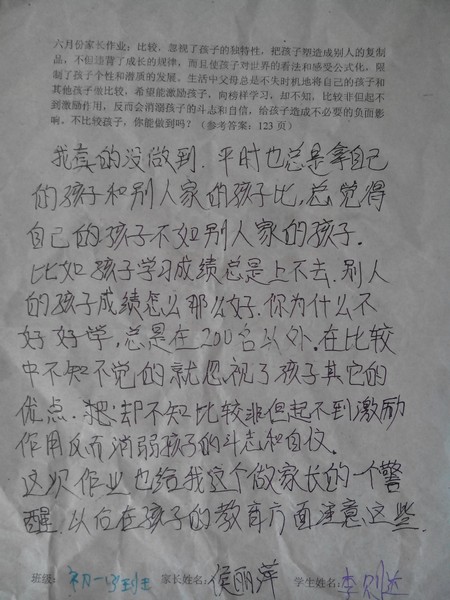 六月份家长作业：比较，忽视了孩子的独特性，把孩子塑造成别人的复制
品，不但违背了成长的规律，而且使孩子对世界的看法和感受公式化，限
制了孩子个性和潜质的发展。生活中父母总是不失时机地将自己的孩子和
其他孩子做比较，希望能激励孩子，向榜样学习，却不知，比较非但起不
到激励作用，反而会消弱孩子的斗志和自信，给孩子造成不必要的负面影
响，不比较孩子，你能做到吗？（参考答案：123页）
我真的没做到．平时也总是拿自己
的孩子和别人家的孩子比，总觉得
自己的孩子不如别人家的孩子．
比如孩子学习成绩总是上不去．别人
的孩子成绩怎么那么好．你为什么不
好好学，总是在200名以外．在比较
中不知不觉的就忽视了孩子其它的
优点．却不知比较非但起不到激励
作用反而消弱孩子的斗志和自信．
这次作业也给我这个做家长的一个警
醒．以后在孩子的教育方面注意这些．
班级：初一 班 家长姓名：侯丽萍 学生姓名：李